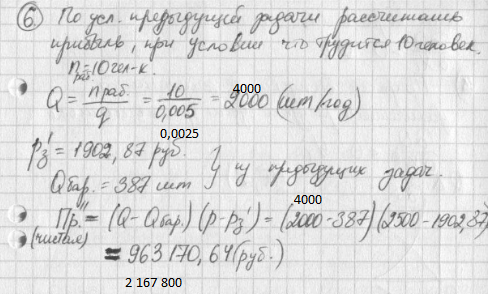 ⑥ По усл. предыдущей задачи рассчитать
прибыль, при условии что трудится 10 человек.
nраб=10 чел-к.
4000
Q = nраб. / q = 10 / 0,005 = 2000 (шт/год)
0,0025
Pз' = 1902,87 руб. } из предыдущих задач.
Qбар. = 387 шт
4000
Пр." = (Q - Qбар.)(p - pз') = (2000 - 387)(2500 - 1902,87)
(чистая)
= 963 170,64 (руб.)
2 167 800